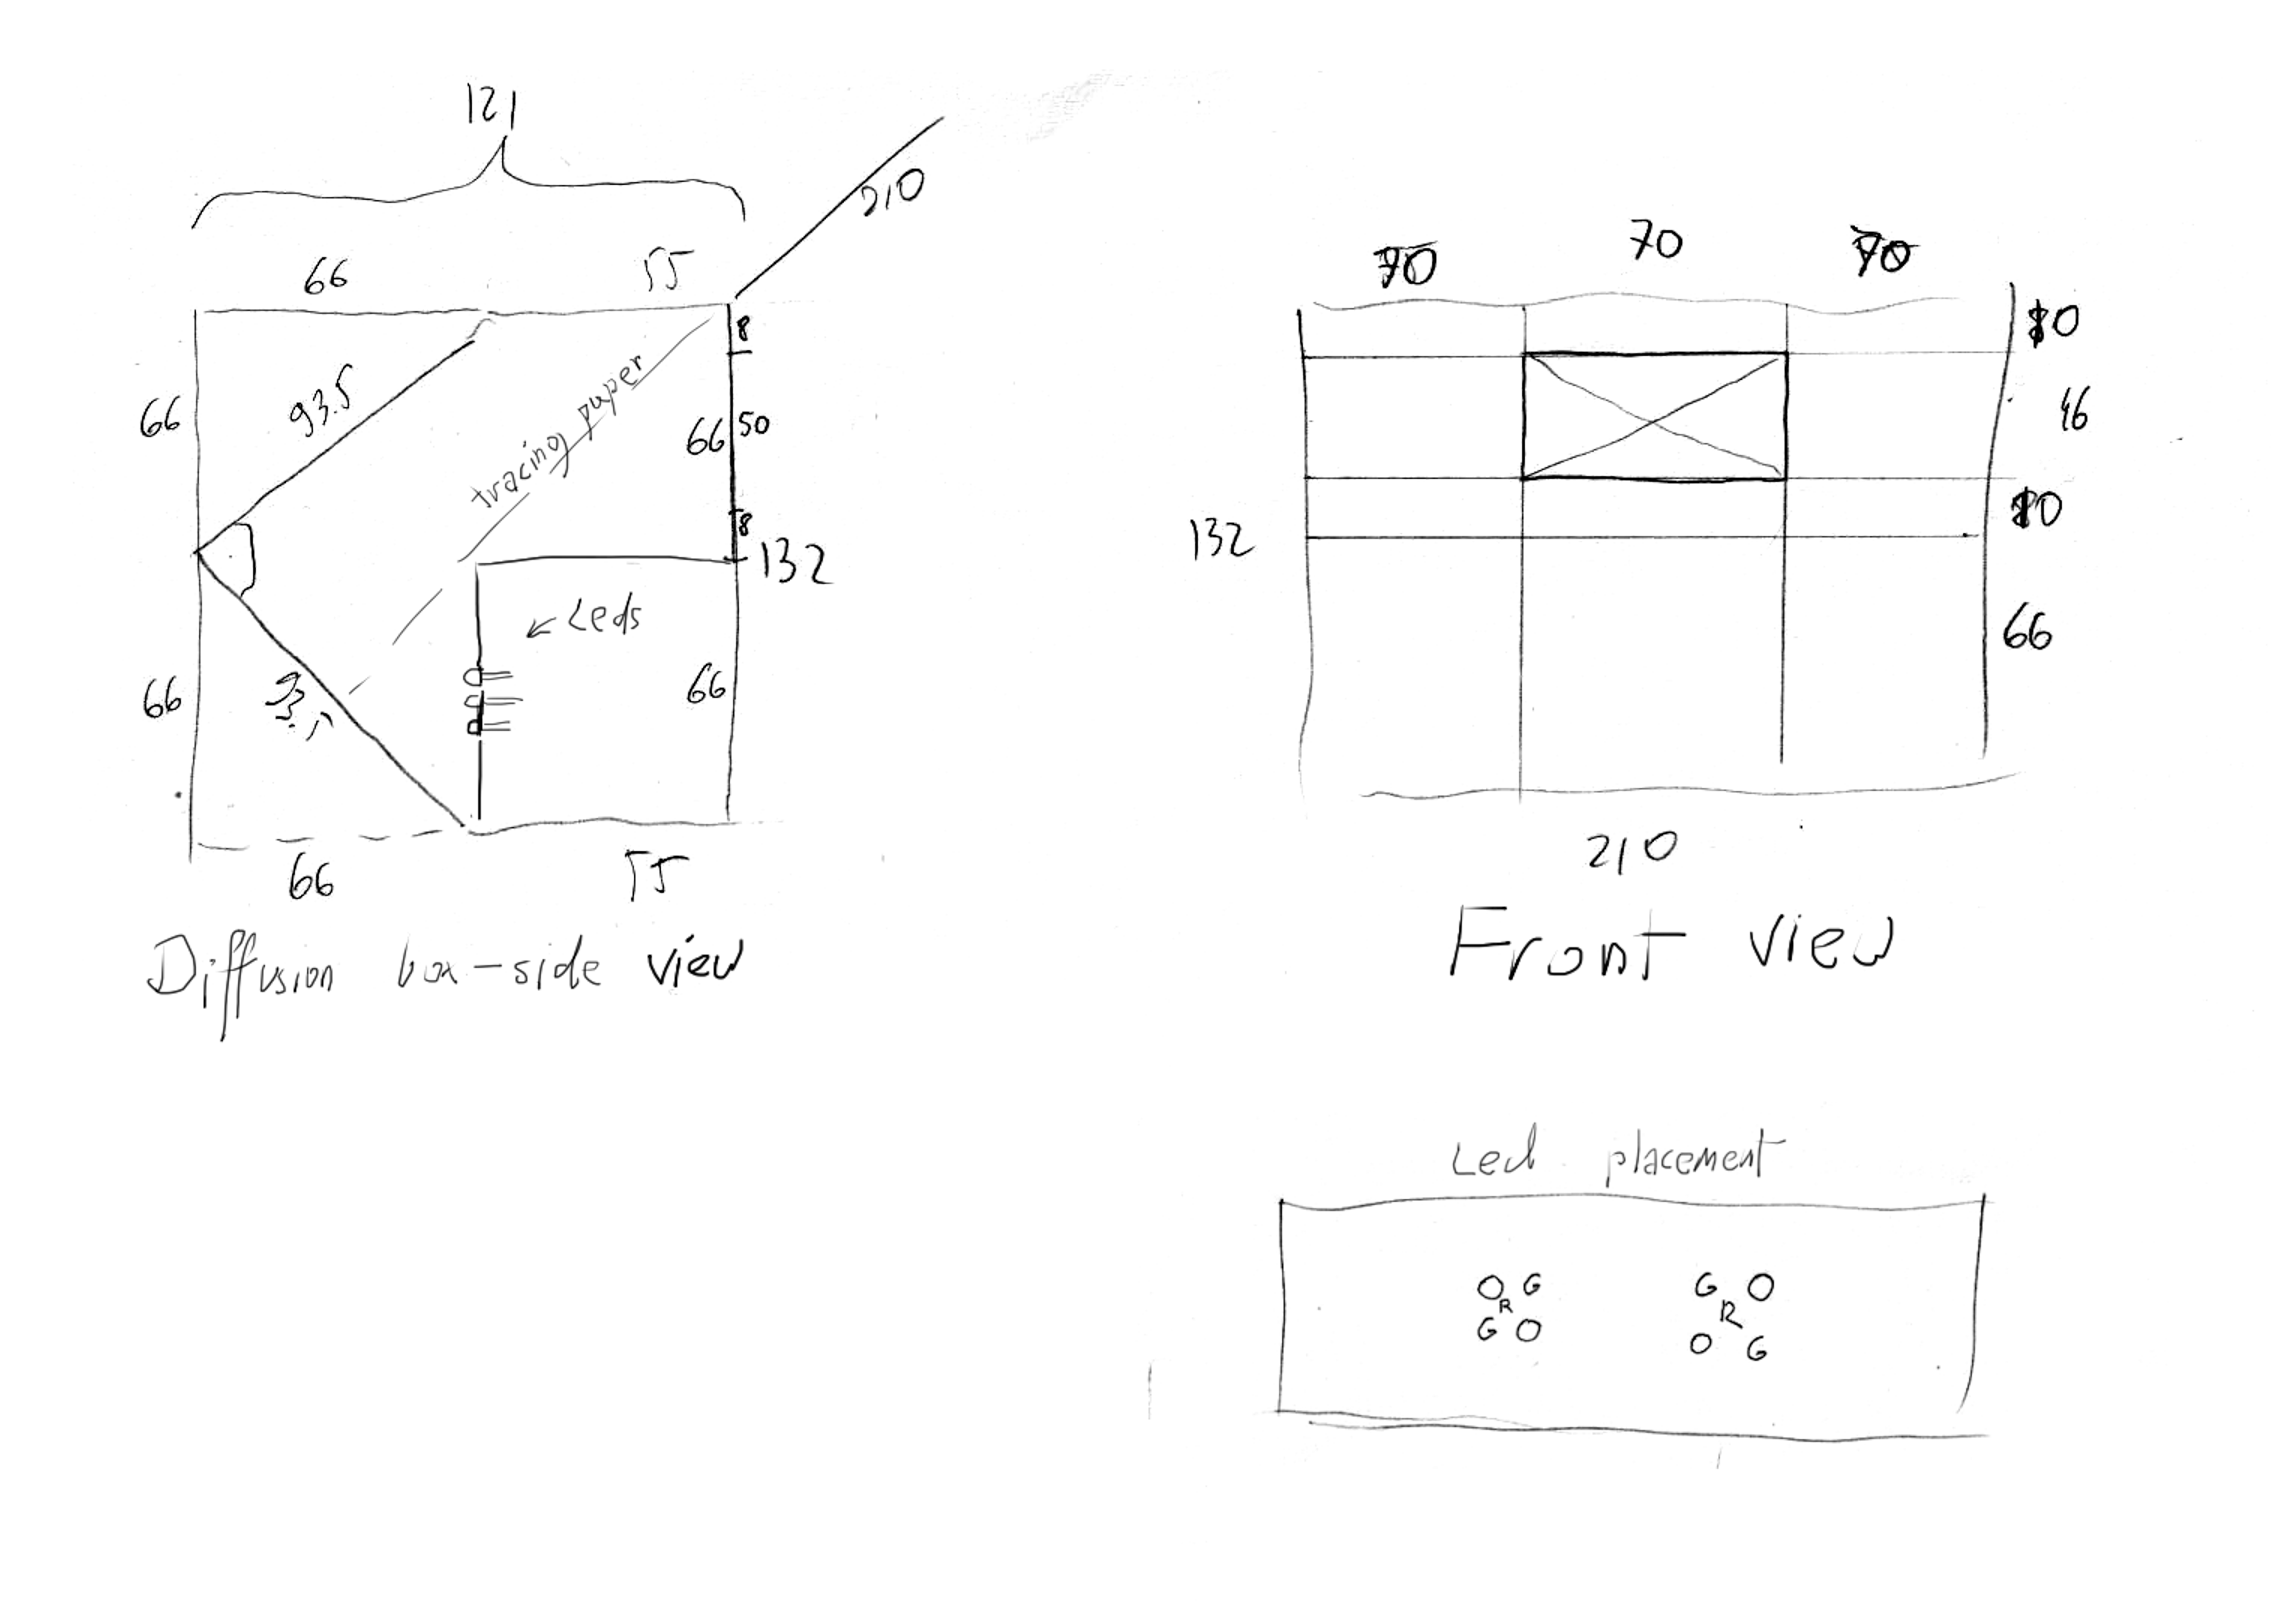 121
210
66 55
8
66 93.5
tracing paper
66 50
8
132
Leds
66 66
66 55
Diffusion box-side view
70 70 70
10
46
10
132
66
210
Front view
Led placement
O G G O
R R
G O O G